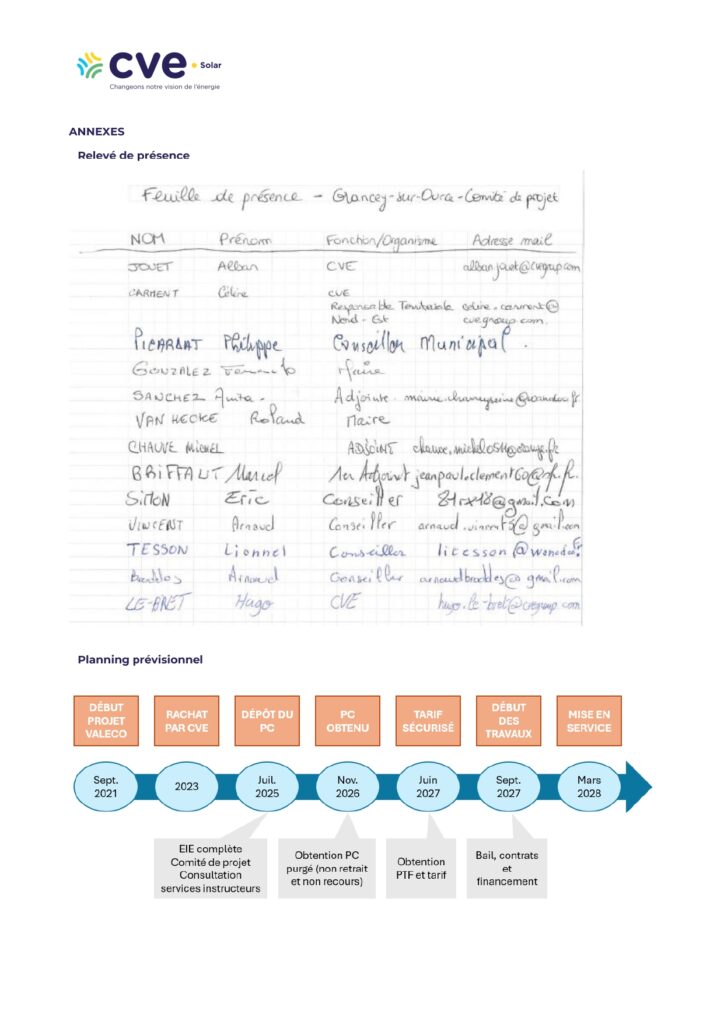 cve Solar
Changeons notre vision de l'énergie
ANNEXES
Relevé de présence
Feuille de présence - Grancey-sur-Ource - Comité de projet
NOM Prénom Fonction/Organisme Adresse mail
JOUET Alban CVE alban.jouet@cvegroup.com
CARMENT CVE
Responsable
Nord-Est cvegroup.com
PICARDAT Philippe Conseiller Municipal.
GONZALEZ Maire
SANCHEZ Anita Adjointe
VAN HECKE Roland Maire
CHAUVE MICHEL ADJOINT
BRIFFAUT Marcel 1er Adjoint
SIMON Eric Conseiller
VINCENT Arnaud Conseiller arnaud.vincent5@gmail.com
TESSON Lionnel Conseiller
Arnaud Conseiller
LE-BRET Hugo CVE hugo.le-bret@cvegroup.com
Planning prévisionnel
DÉBUT PROJET VALECO
RACHAT PAR CVE
DÉPÔT DU PC
PC OBTENU
TARIF SÉCURISÉ
DÉBUT DES TRAVAUX
MISE EN SERVICE
Sept. 2021
2023
Juil. 2025
Nov. 2026
Juin 2027
Sept. 2027
Mars 2028
EIE complète
Comité de projet
Consultation
services instructeurs
Obtention PC
purgé (non retrait
et non recours)
Obtention
PTF et tarif
Bail, contrats
et
financement